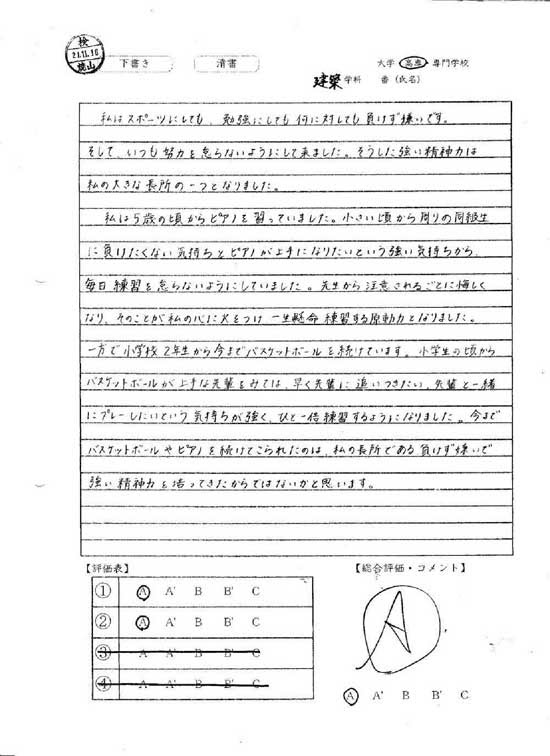 検
21.11.16
下書き
清書
大学 高専 専門学校
建築 学科 番 (氏名)
私はスポーツにしても、勉強にしても何に対しても負けず嫌いです。
そして、いつも努力を怠らないようにして来ました。そうした強い精神力は
私の大きな長所の一つとなりました。
私は5歳の頃からピアノを習っていました。小さい頃から周りの同級生
に負けたくない気持ちとピアノが上手になりたいという強い気持ちから、
毎日練習を怠らないようにしていました。先生から注意されるごとに悔しく
なり、そのことが私の心に火をつけ一生懸命練習する原動力となりました。
一方で小学校2年生から今までバスケットボールを続けています。小学生の頃から
バスケットボールが上手な先輩をみては、早く先輩に追いつきたい、先輩と一緒
にプレーしたいという気持ちが強く、ひと一倍練習するようになりました。今まで
バスケットボールやピアノを続けてこられたのは、私の長所である負けず嫌いで
強い精神力を培ってきたからではないかと思います。
【評価表】
【総合評価・コメント】
① A A' B B' C
② A A' B B' C
③ A A' B B' C
④ A A' B B' C
A
A A' B B' C